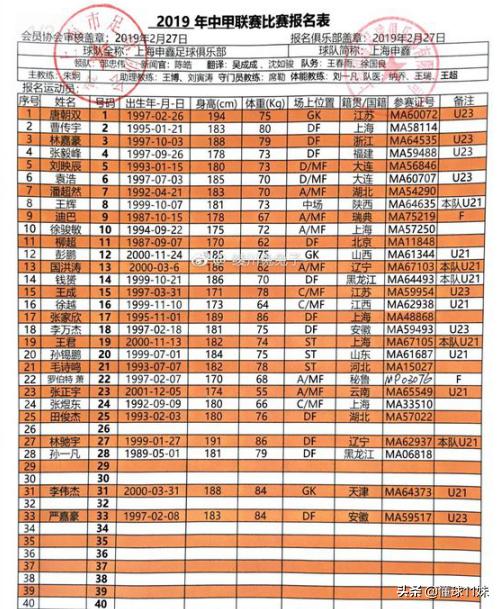 2019 年中甲联赛比赛报名表
会员协会审核盖章：2019年2月27日 报名俱乐部盖章：2019年2月27日
球队全称：上海申鑫足球俱乐部 球队简称：上海申鑫
领队：郜忠伟 新闻官：陈皓 翻译：吴成成、沈如骏 队务：王春雨、徐国良
主教练：朱炯 助理教练：王博、刘寅涛 守门员教练：席勒 体能教练：刘一凡 队医：纳乔、王瑞、王超
报名运动员：
序号 姓名 号码 出生年-月-日 身高(cm) 体重(Kg) 场上位置 籍贯/国籍 参赛证号 备注
1 唐朝双 1 1997-02-26 194 75 GK 江苏 MA60072 U23
2 曹传宇 2 1995-01-21 183 80 DF 上海 MA58114
3 林嘉豪 3 1997-10-03 188 79 DF 浙江 MA64535 U23
4 张毅峰 4 1997-09-28 177 73 DF 福建 MA59488 U23
5 刘映辰 5 1993-01-15 180 73 D/MF 大连 MA56846
6 袁浩 6 1997-07-03 185 70 D/MF 大连 MA60707 U23
7 潘超然 7 1992-04-21 183 70 A/MF 湖北 MA54290
8 王辉 8 1999-10-07 181 73 中场 陕西 MA64635 本队U21
9 迪巴 9 1987-10-15 178 67 A/MF 瑞典 MA75219 F
10 徐骏敏 10 1994-09-22 175 72 A/MF 上海 MA57250
11 柳超 11 1987-09-07 170 62 DF 北京 MA11848
12 彭鹏 12 2000-11-24 185 75 GK 山西 MA61344 U21
13 国洪涛 13 2000-03-6 186 82 A/MF 辽宁 MA67103 本队U21
14 钱赟 14 1999-10-21 186 70 DF 黑龙江 MA64493 本队U21
15 王成 15 1997-03-31 171 78 C/MF 江苏 MA59954 U23
16 徐越 16 1999-11-10 173 64 C/MF 江西 MA62938 U21
17 张家欣 17 1995-11-01 189 86 DF 上海 MA48868
18 李万杰 18 1997-02-18 181 75 DF 安徽 MA59493 U23
19 王君 19 2000-11-13 182 74 ST 上海 MA67105 本队U21
20 孙锡鹏 20 1999-07-01 184 75 ST 山东 MA61687 U21
21 毛诗鸣 21 1993-07-07 181 78 ST 河北 MA15027
22 罗伯特 萧 22 1997-02-07 170 68 A/MF 秘鲁 MP03076 F
23 张正宇 23 2001-12-05 174 55 A/MF 云南 MA65549 U21
24 张煜东 24 1992-09-09 180 66 C/MF 上海 MA33510
25 田俊杰 25 1993-02-03 176 80 DF 湖北 MA57022
26 26
27 林驰宇 27 1999-01-27 191 86 DF 辽宁 MA62937 本队U21
28 孙一凡 28 1989-05-01 181 79 DF 黑龙江 MA06818
29 29
30 30
31 李伟杰 31 2000-03-31 188 84 GK 天津 MA64373 U21
32 32
33 严嘉豪 33 1997-02-08 183 84 DF 安徽 MA59517 U23
34 34
35 35
36 36
37 37
38 38
39 39
40 40
头条 @懂球11妹